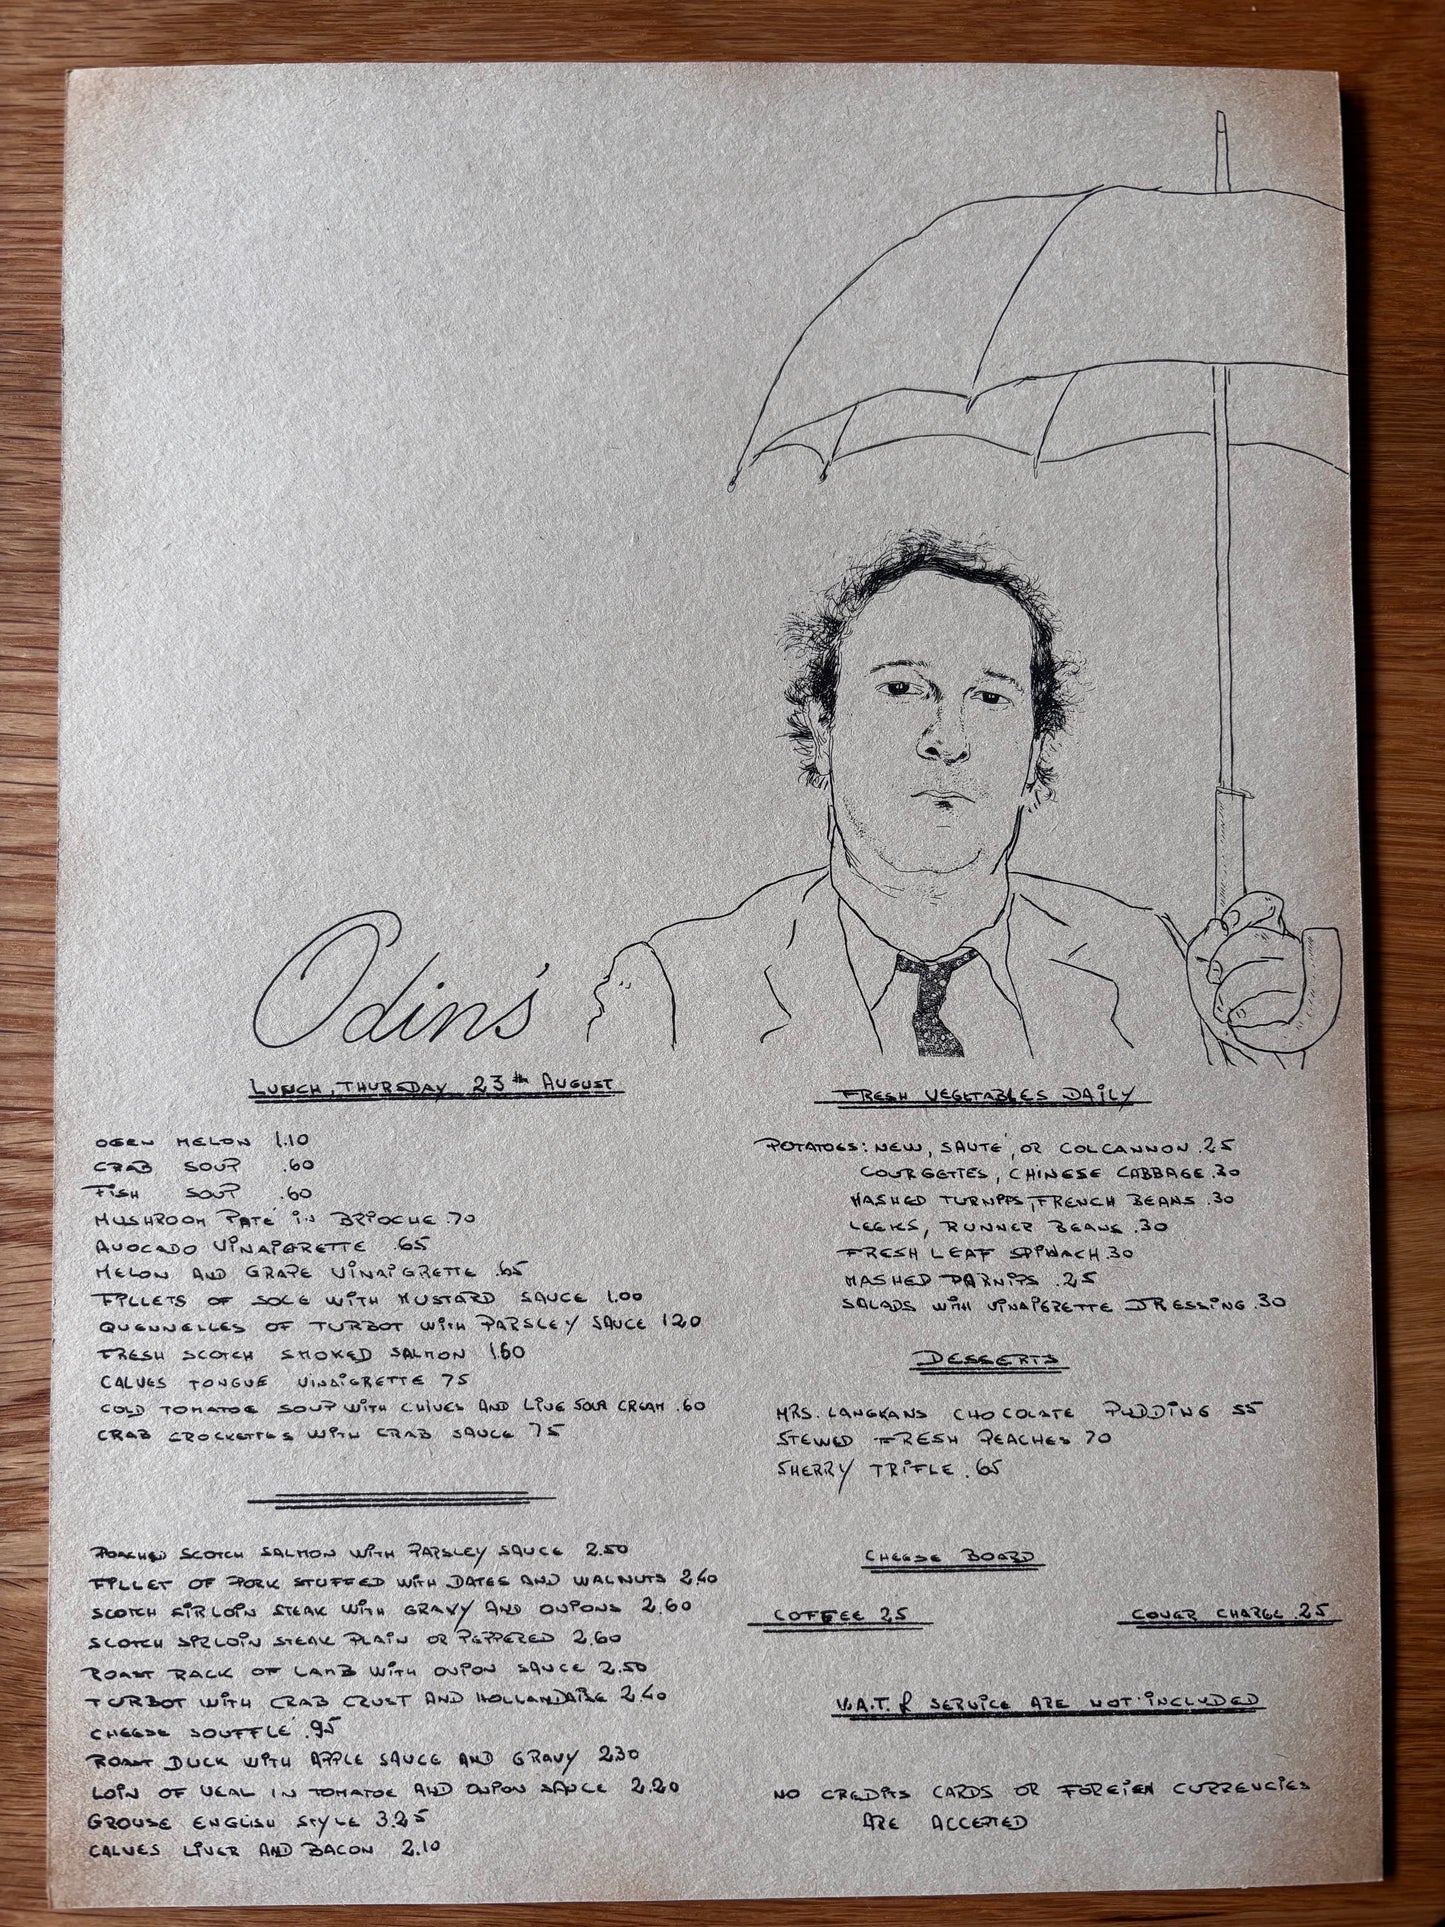 Odin's
LUNCH, THURSDAY 23th AUGUST
OGEN MELON 1.10
CRAB SOUP .60
FISH SOUP .60
MUSHROOM PATÉ IN BRIOCHE .70
AVOCADO VINAIGRETTE .65
MELON AND GRAPE VINAIGRETTE .65
FILLETS OF SOLE WITH MUSTARD SAUCE 1.00
QUENNELLES OF TURBOT WITH PARSLEY SAUCE 1.20
FRESH SCOTCH SMOKED SALMON 1.60
CALVES TONGUE VINAIGRETTE 75
COLD TOMATOE SOUP WITH CHIVES AND LIVE SOUR CREAM .60
CRAB CROCKETTES WITH CRAB SAUCE 75
POACHED SCOTCH SALMON WITH PARSLEY SAUCE 2.50
FILLET OF PORK STUFFED WITH DATES AND WALNUTS 2.40
SCOTCH SIRLOIN STEAK WITH GRAVY AND ONIONS 2.60
SCOTCH SIRLOIN STEAK PLAIN OR PEPPERED 2.60
ROAST RACK OF LAMB WITH ONION SAUCE 2.50
TURBOT WITH CRAB CRUST AND HOLLANDAISE 2.40
CHEESE SOUFFLÉ .95
ROAST DUCK WITH APPLE SAUCE AND GRAVY 2.30
LOIN OF VEAL IN TOMATOE AND ONION SAUCE 2.20
GROUSE ENGLISH STYLE 3.25
CALVES LIVER AND BACON 2.10
FRESH VEGETABLES DAILY
POTATOES: NEW, SAUTÉ, OR COLCANNON .25
COURGETTES, CHINESE CABBAGE .30
MASHED TURNIPS, FRENCH BEANS .30
LEEKS, RUNNER BEANS .30
FRESH LEAF SPINACH .30
MASHED PARNIPS .25
SALADS WITH VINAIGRETTE DRESSING .30
DESSERTS
MRS. LANGKANS CHOCOLATE PUDDING 55
STEWED FRESH PEACHES 70
SHERRY TRIFLE .65
CHEESE BOARD
COFFEE 25
COVER CHARGE .25
V.A.T. & SERVICE ARE NOT INCLUDED
NO CREDITS CARDS OR FOREIEN CURRENCIES
ARE ACCEPTED